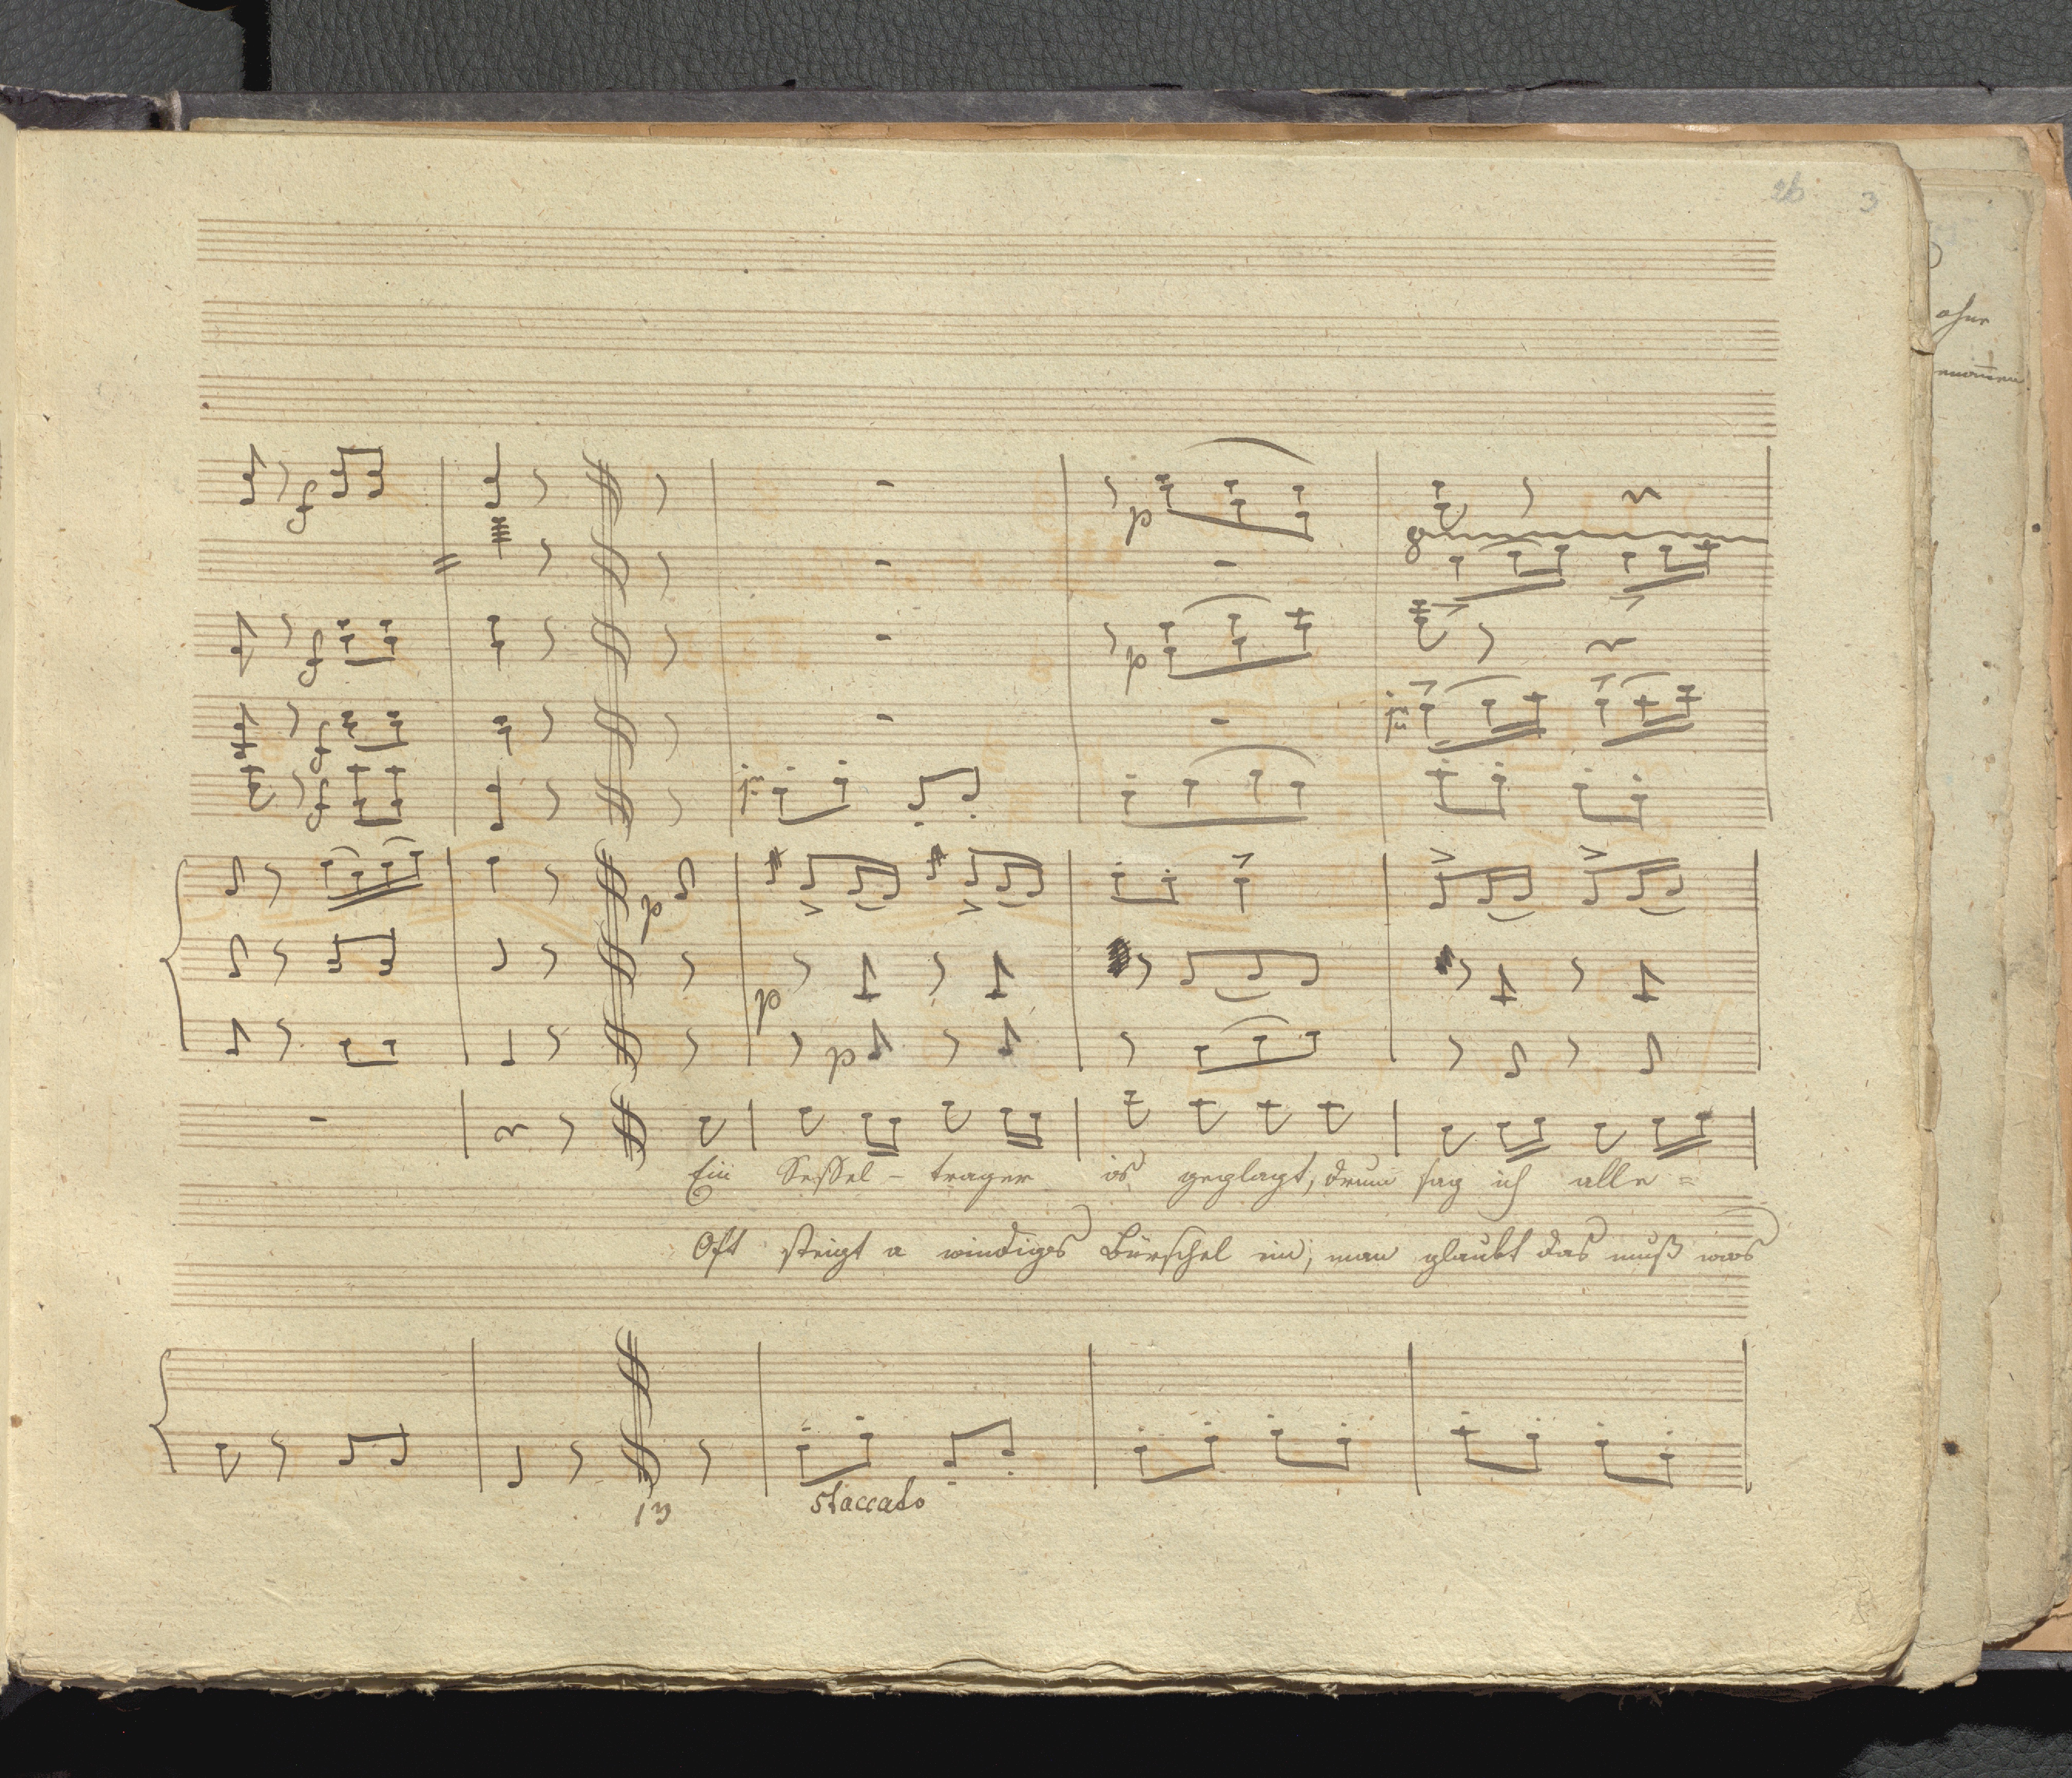 3
f
p
8
f
p
f
f
p
p
p
Ein Sessel - trager is geplagt, drum sag ich alle =
Oft steigt a windiges Bürschel ein, man glaubt das muß was
13
staccato